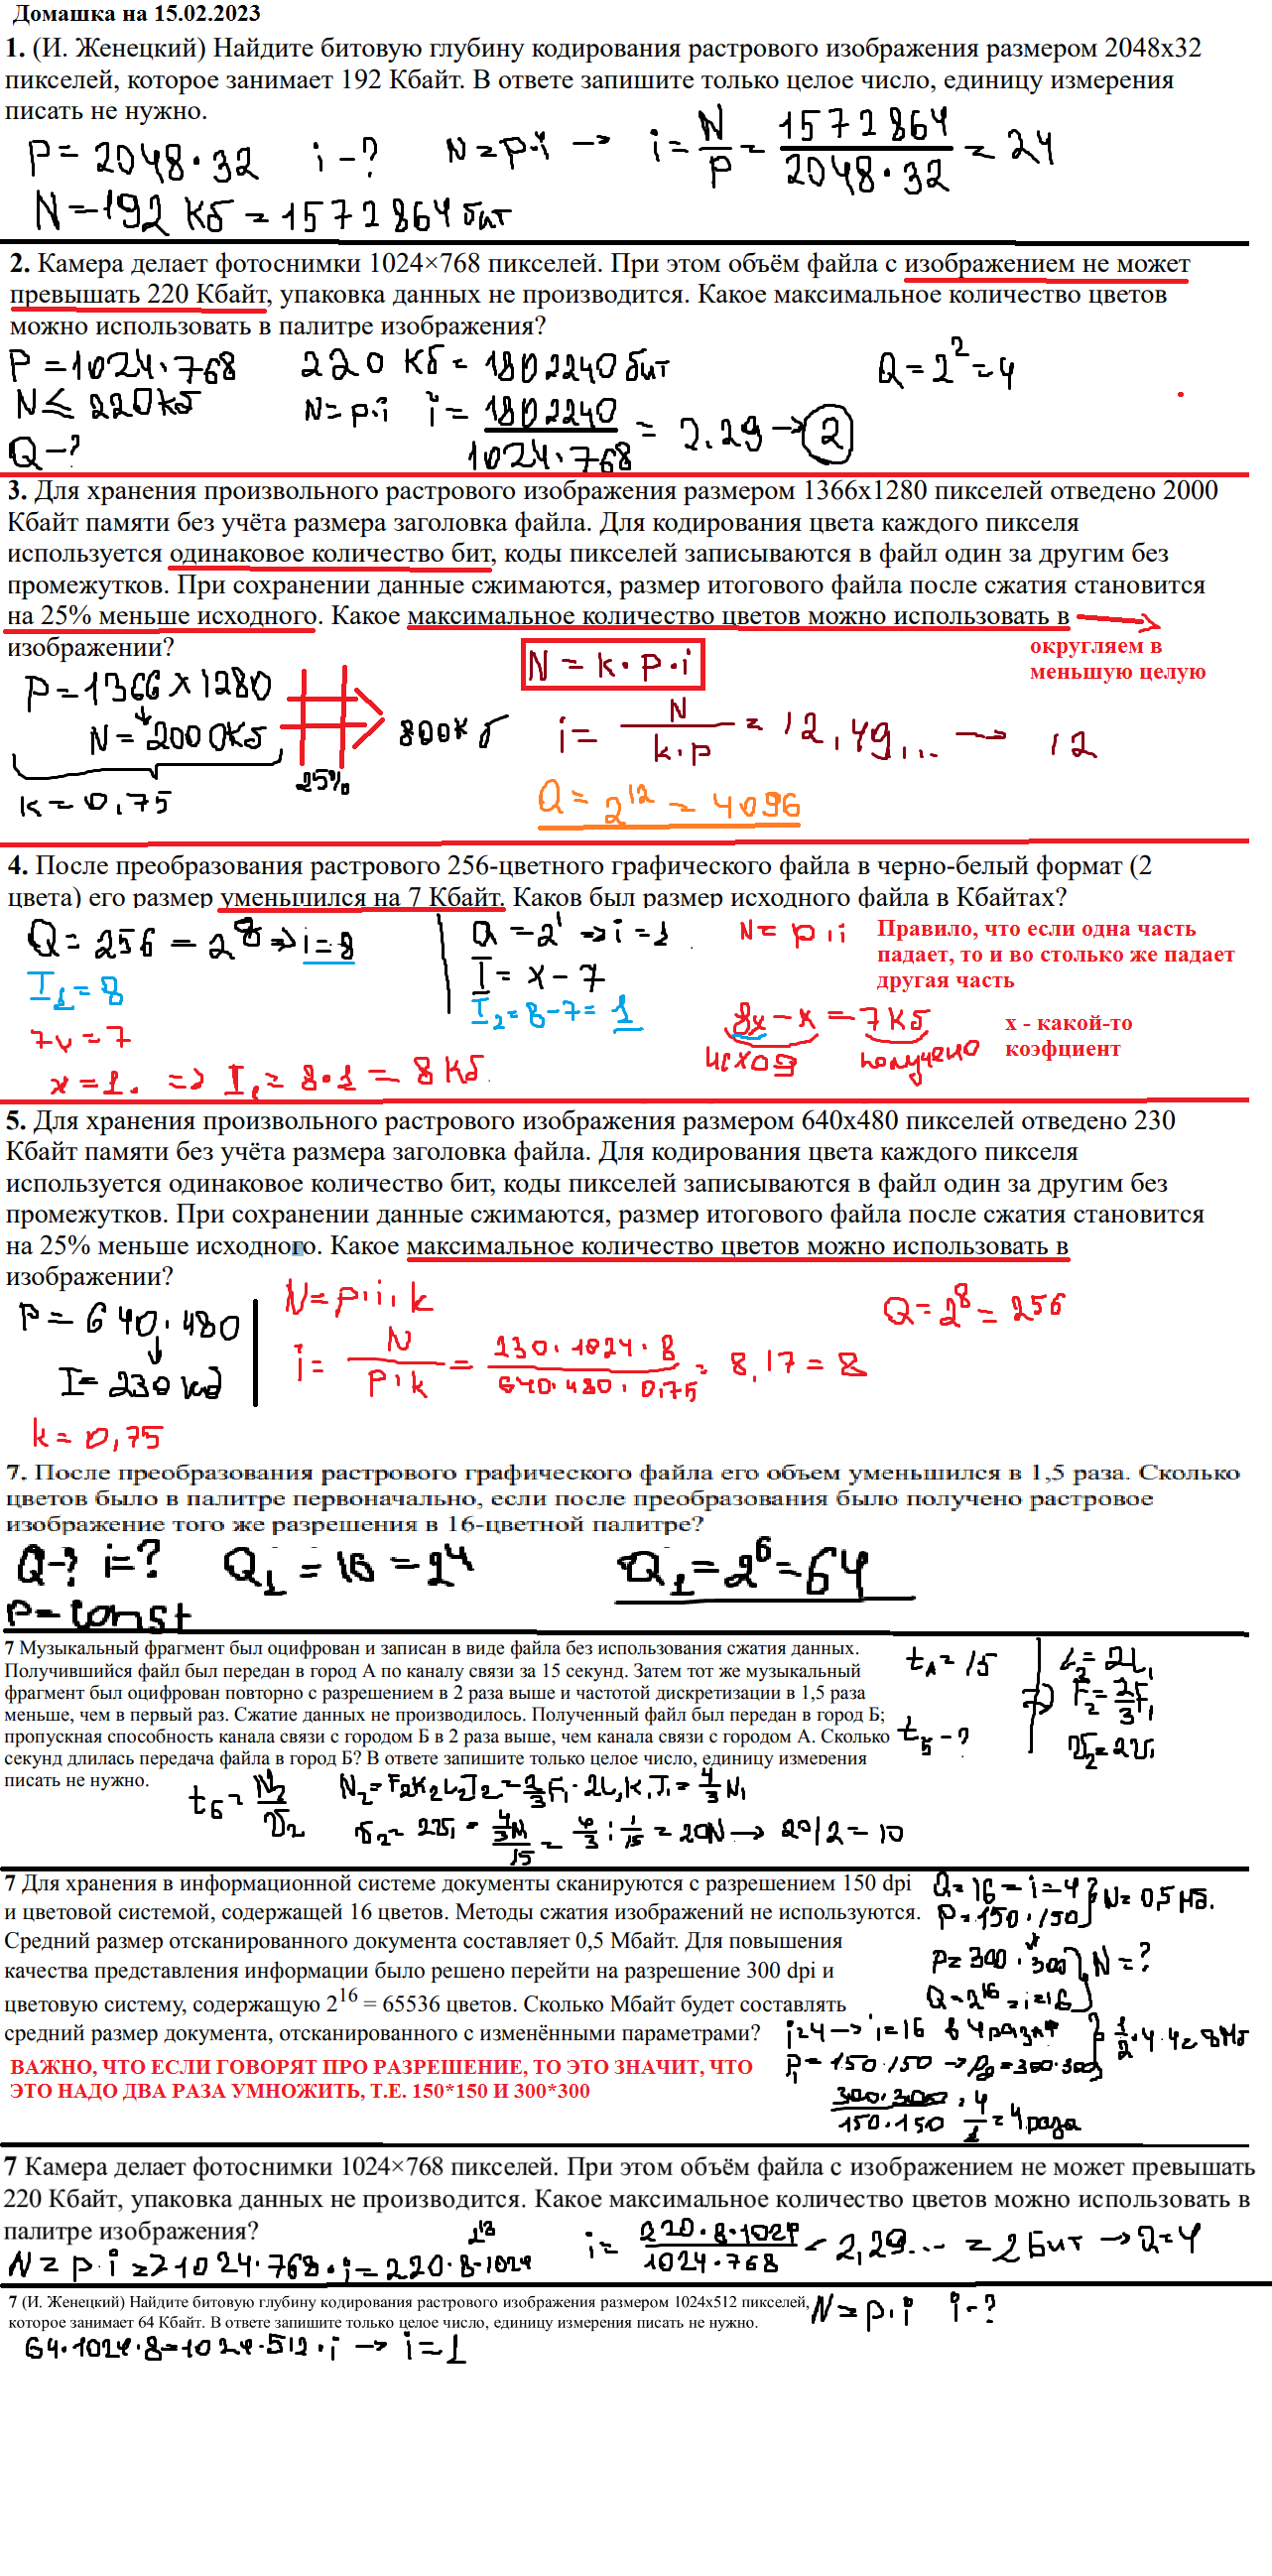 Домашка на 15.02.2023
1. (И. Женецкий) Найдите битовую глубину кодирования растрового изображения размером 2048x32
пикселей, которое занимает 192 Кбайт. В ответе запишите только целое число, единицу измерения
писать не нужно.
P = 2048 · 32 i - ? N = p·i → i = N/P = 1572864/2048·32 = 24
N = 192 Кб = 1572864 бит
2. Камера делает фотоснимки 1024×768 пикселей. При этом объём файла с изображением не может
превышать 220 Кбайт, упаковка данных не производится. Какое максимальное количество цветов
можно использовать в палитре изображения?
P = 1024·768 220 Кб = 1802240 бит Q = 2² = 4
N ≤ 220Кб N = p·i i = 1802240/1024·768 = 2.29 → 2
Q - ?
3. Для хранения произвольного растрового изображения размером 1366x1280 пикселей отведено 2000
Кбайт памяти без учёта размера заголовка файла. Для кодирования цвета каждого пикселя
используется одинаковое количество бит, коды пикселей записываются в файл один за другим без
промежутков. При сохранении данные сжимаются, размер итогового файла после сжатия становится
на 25% меньше исходного. Какое максимальное количество цветов можно использовать в
изображении?
округляем в
меньшую целую
P = 1366 x 1280 N = k·p·i
N = 2000Кб 25% i = N/k·p = 12,49... → 12
k = 0,75 Q = 2¹² = 4096
4. После преобразования растрового 256-цветного графического файла в черно-белый формат (2
цвета) его размер уменьшился на 7 Кбайт. Каков был размер исходного файла в Кбайтах?
Q = 256 = 2⁸ => i = 8 Q = 2¹ => i = 1 N = p·i
Правило, что если одна часть
падает, то и во столько же падает
другая часть
I = x - 7
I₁ = 8 I₂ = 8-7 = 1
7x = 7 8x - x = 7Кб
исход получено
x - какой-то
коэфциент
x = 1. => I₁ = 8·1 = 8 Кб.
5. Для хранения произвольного растрового изображения размером 640x480 пикселей отведено 230
Кбайт памяти без учёта размера заголовка файла. Для кодирования цвета каждого пикселя
используется одинаковое количество бит, коды пикселей записываются в файл один за другим без
промежутков. При сохранении данные сжимаются, размер итогового файла после сжатия становится
на 25% меньше исходного. Какое максимальное количество цветов можно использовать в
изображении?
P = 640·480 N = p·i·k Q = 2⁸ = 256
I = 230 кб i = N/P·k = 230·1024·8/640·480·0,75 = 8,17 = 8
k = 0,75
7. После преобразования растрового графического файла его объем уменьшился в 1,5 раза. Сколько
цветов было в палитре первоначально, если после преобразования было получено растровое
изображение того же разрешения в 16-цветной палитре?
Q - ? i = ? Q₁ = 16 = 2⁴ Q₁ = 2⁶ = 64
P = const
7 Музыкальный фрагмент был оцифрован и записан в виде файла без использования сжатия данных.
Получившийся файл был передан в город А по каналу связи за 15 секунд. Затем тот же музыкальный
фрагмент был оцифрован повторно с разрешением в 2 раза выше и частотой дискретизации в 1,5 раза
меньше, чем в первый раз. Сжатие данных не производилось. Полученный файл был передан в город Б;
пропускная способность канала связи с городом Б в 2 раза выше, чем канала связи с городом А. Сколько
секунд длилась передача файла в город Б? В ответе запишите только целое число, единицу измерения
писать не нужно.
t_A = 15
t_Б - ?
F₂ = 2/3 F₁
t_Б = N₂/V₂
→ 20/2 = 10
7 Для хранения в информационной системе документы сканируются с разрешением 150 dpi
и цветовой системой, содержащей 16 цветов. Методы сжатия изображений не используются.
Средний размер отсканированного документа составляет 0,5 Мбайт. Для повышения
качества представления информации было решено перейти на разрешение 300 dpi и
цветовую систему, содержащую 2¹⁶ = 65536 цветов. Сколько Мбайт будет составлять
средний размер документа, отсканированного с изменёнными параметрами?
ВАЖНО, ЧТО ЕСЛИ ГОВОРЯТ ПРО РАЗРЕШЕНИЕ, ТО ЭТО ЗНАЧИТ, ЧТО
ЭТО НАДО ДВА РАЗА УМНОЖИТЬ, Т.Е. 150*150 И 300*300
Q = 16 = i = 4
P = 150·150 N = 0,5 Мб.
P = 300·300 N = ?
Q = 2¹⁶ = i = 16
i = 4 → i = 16 в 4 раза
P₁ = 150·150 → P₂ = 300·300 1/2·4·4 = 8Мб
300·300/150·150 = 4/1 = 4 раза
7 Камера делает фотоснимки 1024×768 пикселей. При этом объём файла с изображением не может превышать
220 Кбайт, упаковка данных не производится. Какое максимальное количество цветов можно использовать в
палитре изображения?
2¹³
N = p·i => 1024·768·i = 220·8·1024 i = 220·8·1024/1024·768 = 2,29... = 2 бит → 2 = 4
7 (И. Женецкий) Найдите битовую глубину кодирования растрового изображения размером 1024x512 пикселей,
которое занимает 64 Кбайт. В ответе запишите только целое число, единицу измерения писать не нужно.
N = p·i i - ?
64·1024·8 = 1024·512·i → i = 1